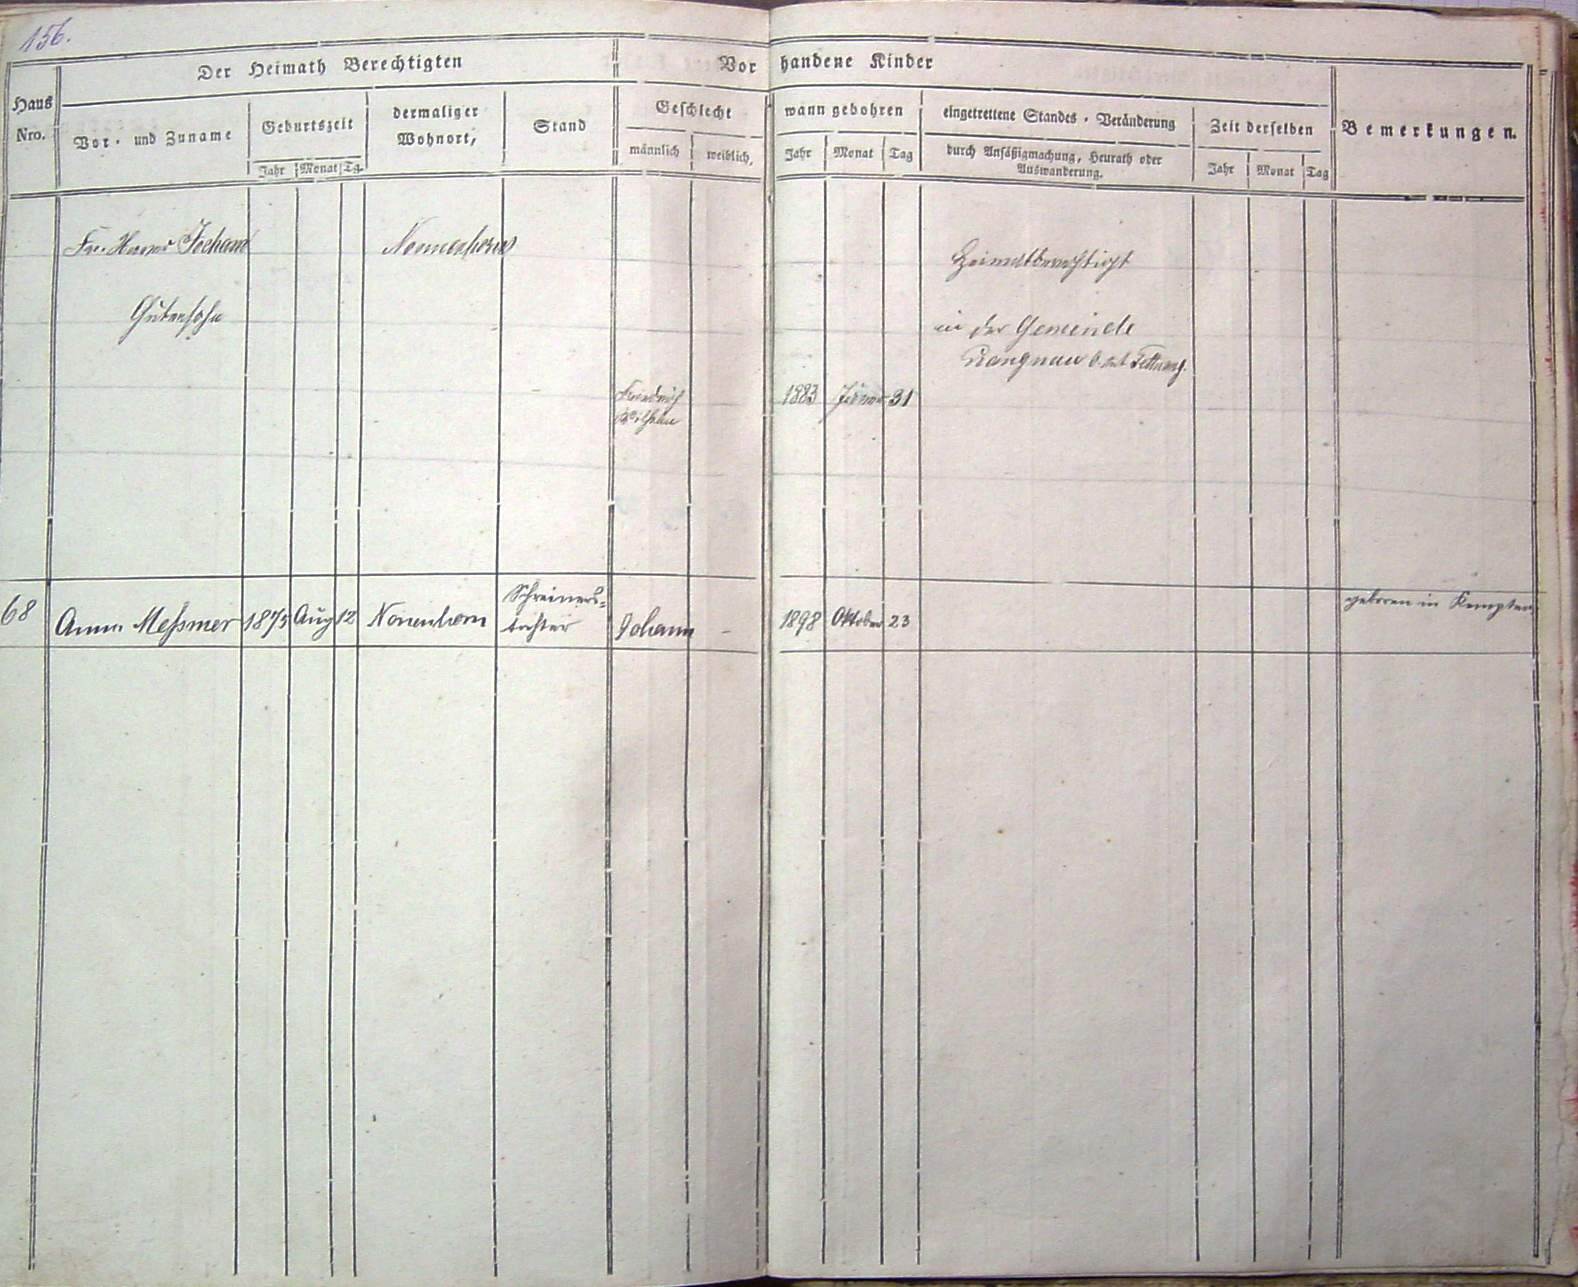 156.
Der Heimath Berechtigten
Vorhandene Kinder
Haus Nro.
Vor- und Zuname
Geburtszeit
Jahr Monat Tg.
dermaliger Wohnort,
Stand
Geschlecht
männlich weiblich,
wann gebohren
Jahr Monat Tag
eingetrettene Standes-Veränderung
durch Ansäßigmachung, Heurath oder
Auswanderung.
Zeit derselben
Jahr Monat Tag
Bemerkungen.
Jocham Nonnenhorn Heimatberechtigt
Gutensohn in der Gemeinde
Langnau O. Amt Tettnang.
Friedrich 1883 Januar 31
Wilhelm
68 Anna Messmer 1875 Aug 12 Nonnenhorn Schreiners- Johann - 1898 Oktober 23 geboren in Kempten
tochter